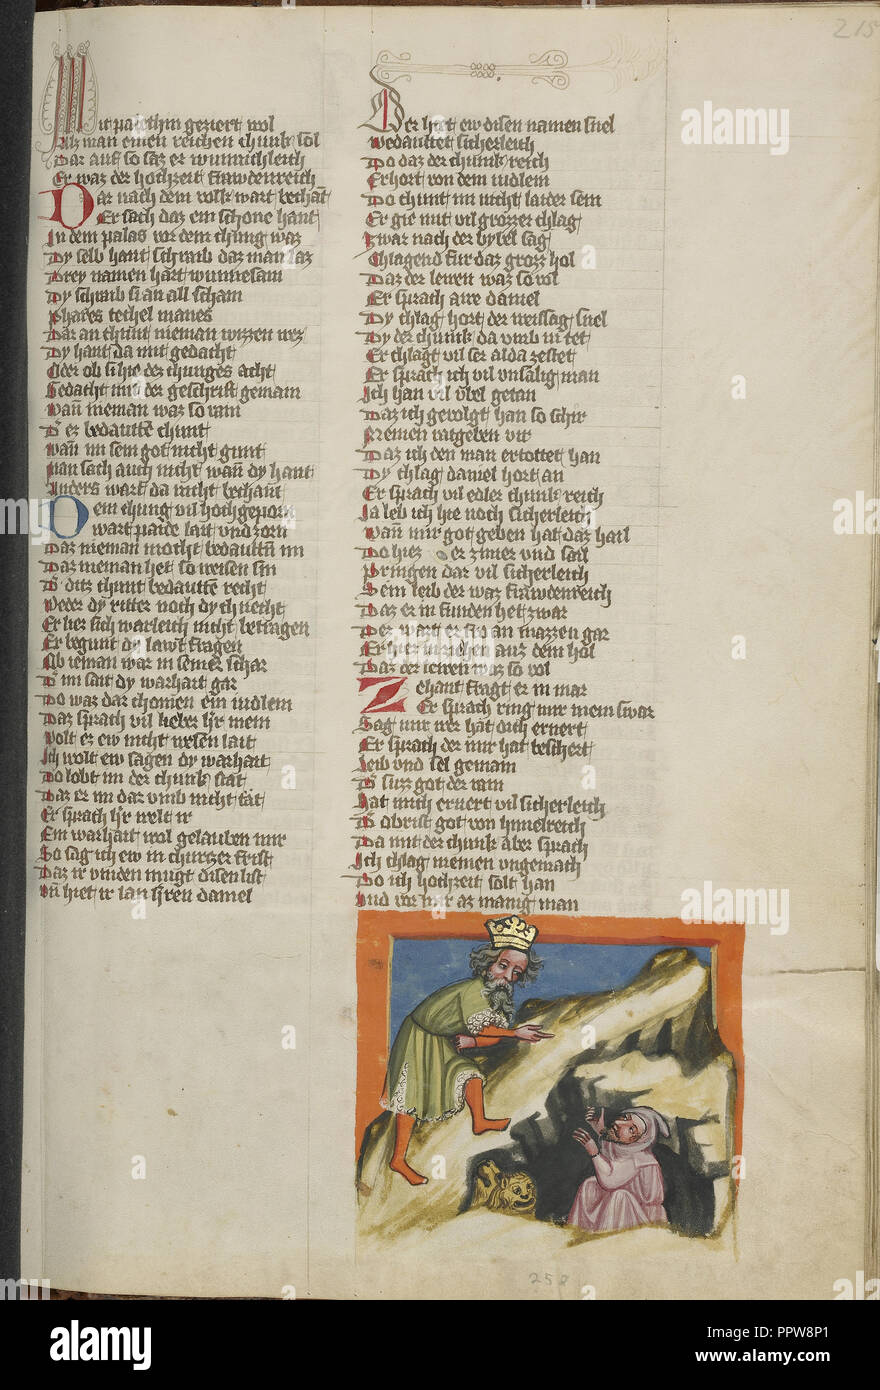 215
Mit palethm geziert wol
Alz man einen reichen chunk sol
Dar auf so saz er wunnichleich
Er waz der hochzeit frawdenreich
Dar nach dem volk wart bechant
Er sach daz ein schone hant
In dem palas vor dem chung waz
Dy selb hant schraib daz man laz
Drey namen hart wunnesam
Dy schraib si an all scham
Phares techel manes
Dar an chunt nieman wizzen wez
Dy hant da mit gedacht
Oder ob si hie der chunges acht
Gedacht mit der geschrift gemain
Wan nieman waz so rain
Der ez bedautten chunt
Wan im sein got nicht gunt
Man sach auch nicht wan dy hant
Anders wart da nicht bechant
Dem chung vil hochgeporn
Wart paide lait vnd zorn
Daz nieman mocht bedautten im
Daz nieman het so weisen sin
Der ditz chunt bedautten recht
Weder dy ritter noch dy chnecht
Er lies sich warleich nicht betragen
Er begunt dy lawt fragen
Ob ieman war in seiner schar
Der im sait dy warhait gar
Do waz dar chomen ein iudlem
Daz sprach vil lieber herr mein
Wolt ez ew nicht wesen lait
Ich wolt ew sagen dy warhait
Do lobt im der chunk stat
Daz er im dar vmb nicht tat
Er sprach herr welt ir
Ein warhait wol gelauben mir
So sag ich ew in churtzer frist
Daz ir vinden mugt disen list
Vnd hiet ir lan herren daniel
Der hiet ew disen namen snel
Bedauttet sicherleich
Do daz der chunk reich
Erhort von dem iudlem
Do chunt im nicht laider sein
Er gie mit vil grozzer chlag
Zwar nach der bybel sag
Chlagend fur daz grozz hol
Daz der lewen waz so vol
Er sprach awe daniel
Dy chlag hort der weissag snel
Dy der chunk da vmb in tet
Er chlagt vil ser alda zestet
Er sprach ich vil vnsalig man
Ich han vil vbel getan
Daz ich gevolgt han so schir
Meinen ratgeben vir
Daz ich den man ertottet han
Dy chlag daniel hort an
Er sprach vil edler chunk reich
Ja leb ich hie noch sicherleich
Wan mir got geben hat daz hail
Do hiez er zimer vnd sail
Pringen dar vil sicherleich
Sein leib der waz frawdenreich
Daz er in funden het zwar
Dez wart er fro an mazzen gar
Er hiez in ziehen auz dem hol
Daz der lewen waz so vol
Zehant fragt er in mar
Er sprach ring mir mein swar
Sag mir wer hat dich ernert
Er sprach der mir hat beschert
Leib vnd sel gemain
Der suzz got der rain
Hat mich ernert vil sicherleich
Der obrist got von himelreich
Da mit der chunk aber sprach
Ich chlag meinen vngemach
Do ich hochzeit solt han
Vnd vor mir az manig man
258
alamy
Image ID: PPW8P1
www.alamy.com